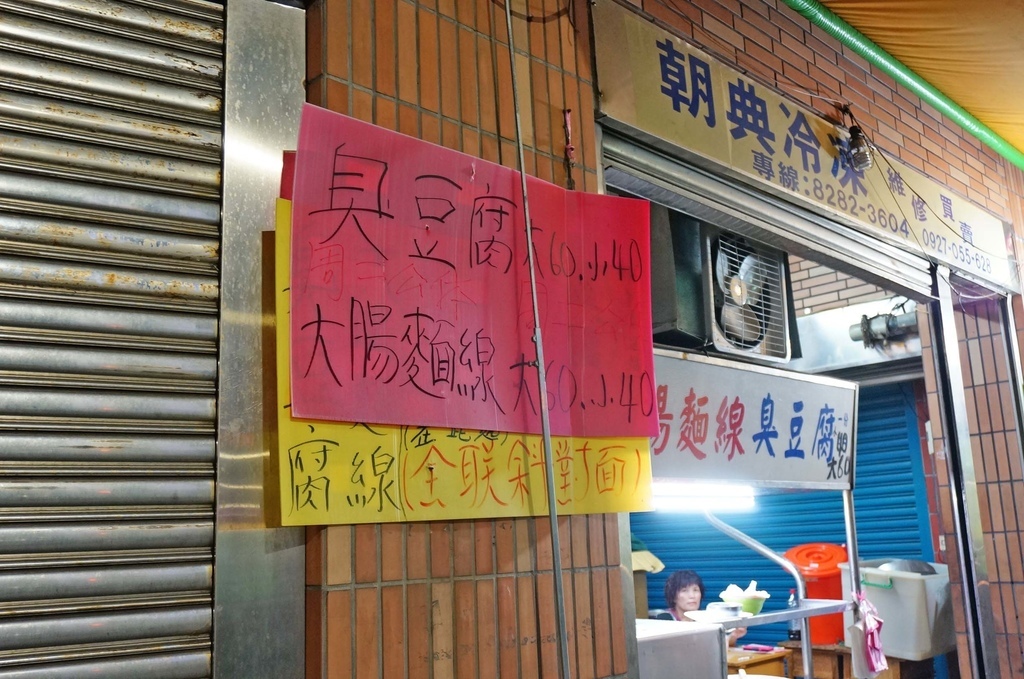 臭豆腐 大60.小40
大腸麵線 大60.小40
腐線(全联斜對面)
朝典冷凍 維修買賣
專線:8282-3604 0927-055-628
腸麵線 臭豆腐